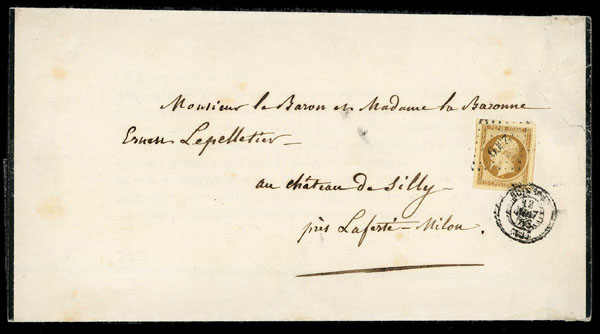 Monsieur le Baron et Madame la Baronne
Ernest Lepelletier
au château de Silly
près Laferté-Milon.